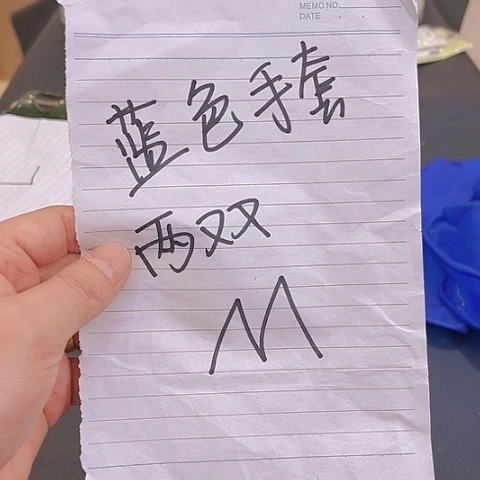 MEMO NO.
DATE
蓝色手套
两双
M